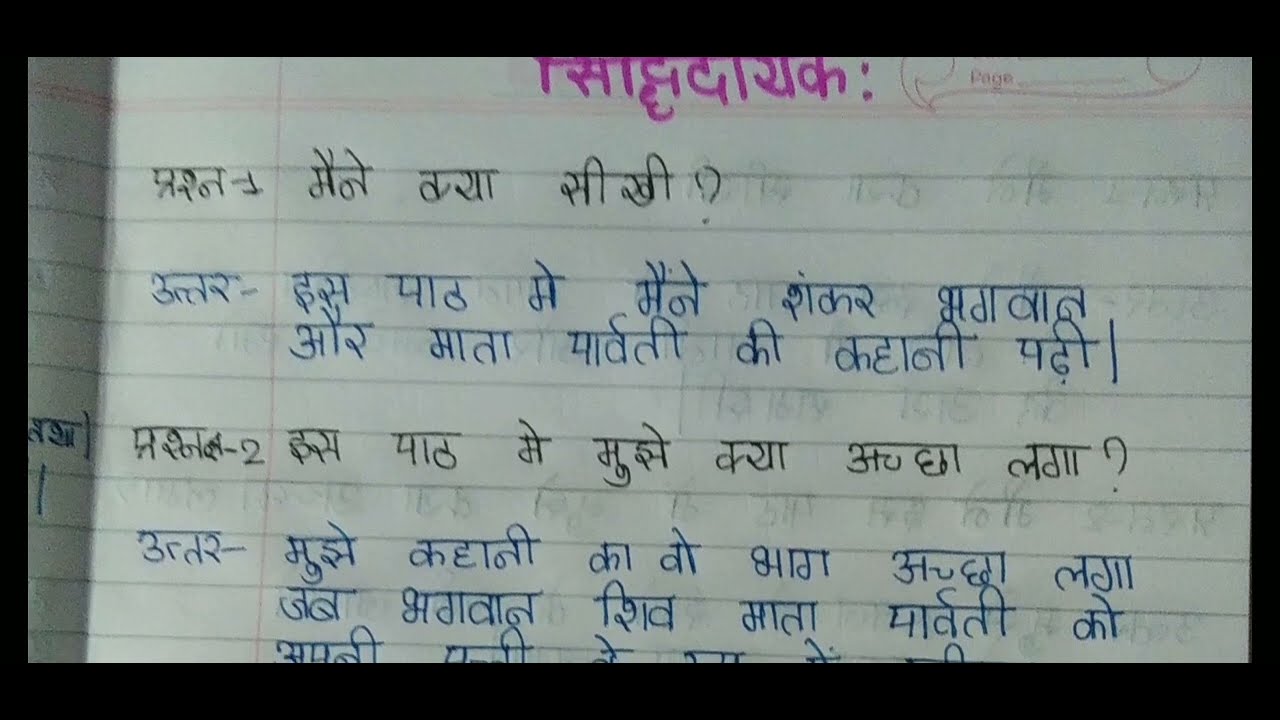 सिद्धिदायक:
Page
प्रश्न-1 मैने क्या सीखी?
उत्तर- इस पाठ मे मैंने शंकर भगवान
और माता पार्वती की कहानी पढ़ी|
प्रश्न-2 इस पाठ मे मुझे क्या अच्छा लगा?
उत्तर- मुझे कहानी का वो भाग अच्छा लगा
जब भगवान शिव माता पार्वती को
अपनी